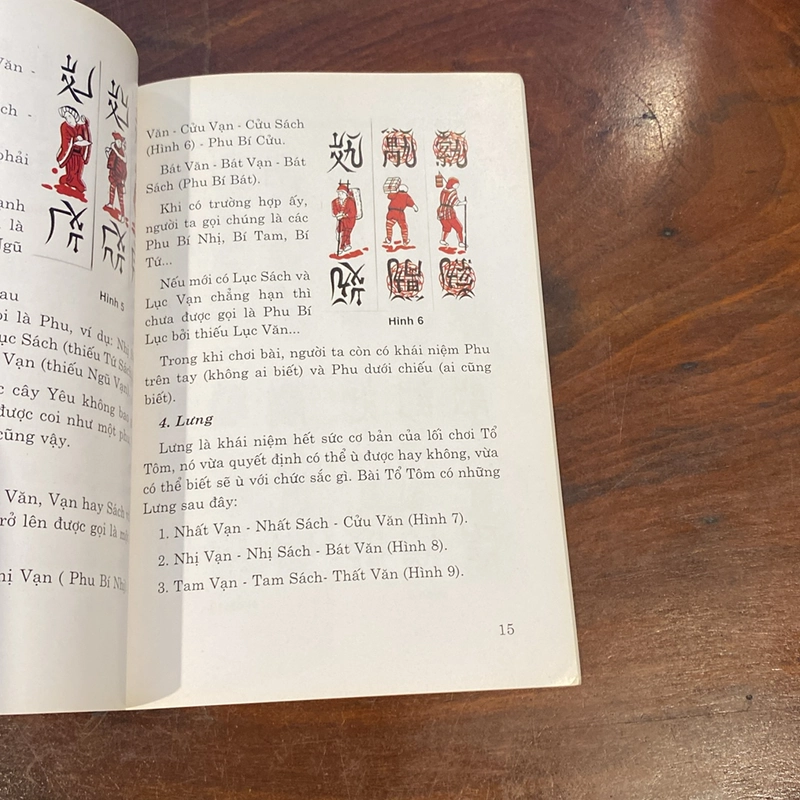 Văn -
ch -
phải
ạnh
là
Ngũ
Hình 5
au
ọi là Phu, ví dụ:
ục Sách (thiếu Tứ
Vạn (thiếu Ngũ Vạn)
c cây Yêu không
được coi như một
cũng vậy.
Văn, Vạn hay Sách
rở lên được gọi là
hị Vạn ( Phu Bí
Văn - Cửu Vạn - Cửu Sách
(Hình 6) - Phu Bí Cửu.
Bát Văn - Bát Vạn - Bát
Sách (Phu Bí Bát).
Khi có trường hợp ấy,
người ta gọi chúng là các
Phu Bí Nhị, Bí Tam, Bí
Tứ...
Nếu mới có Lục Sách và
Lục Vạn chẳng hạn thì
chưa được gọi là Phu Bí
Lục bởi thiếu Lục Văn...
Hình 6
Trong khi chơi bài, người ta còn có khái niệm Phu
trên tay (không ai biết) và Phu dưới chiếu (ai cũng
biết).
4. Lưng
Lưng là khái niệm hết sức cơ bản của lối chơi Tổ
Tôm, nó vừa quyết định có thể ù được hay không, vừa
có thể biết sẽ ù với chức sắc gì. Bài Tổ Tôm có những
Lưng sau đây:
1. Nhất Vạn - Nhất Sách - Cửu Văn (Hình 7).
2. Nhị Vạn - Nhị Sách - Bát Văn (Hình 8).
3. Tam Vạn - Tam Sách- Thất Văn (Hình 9).
15